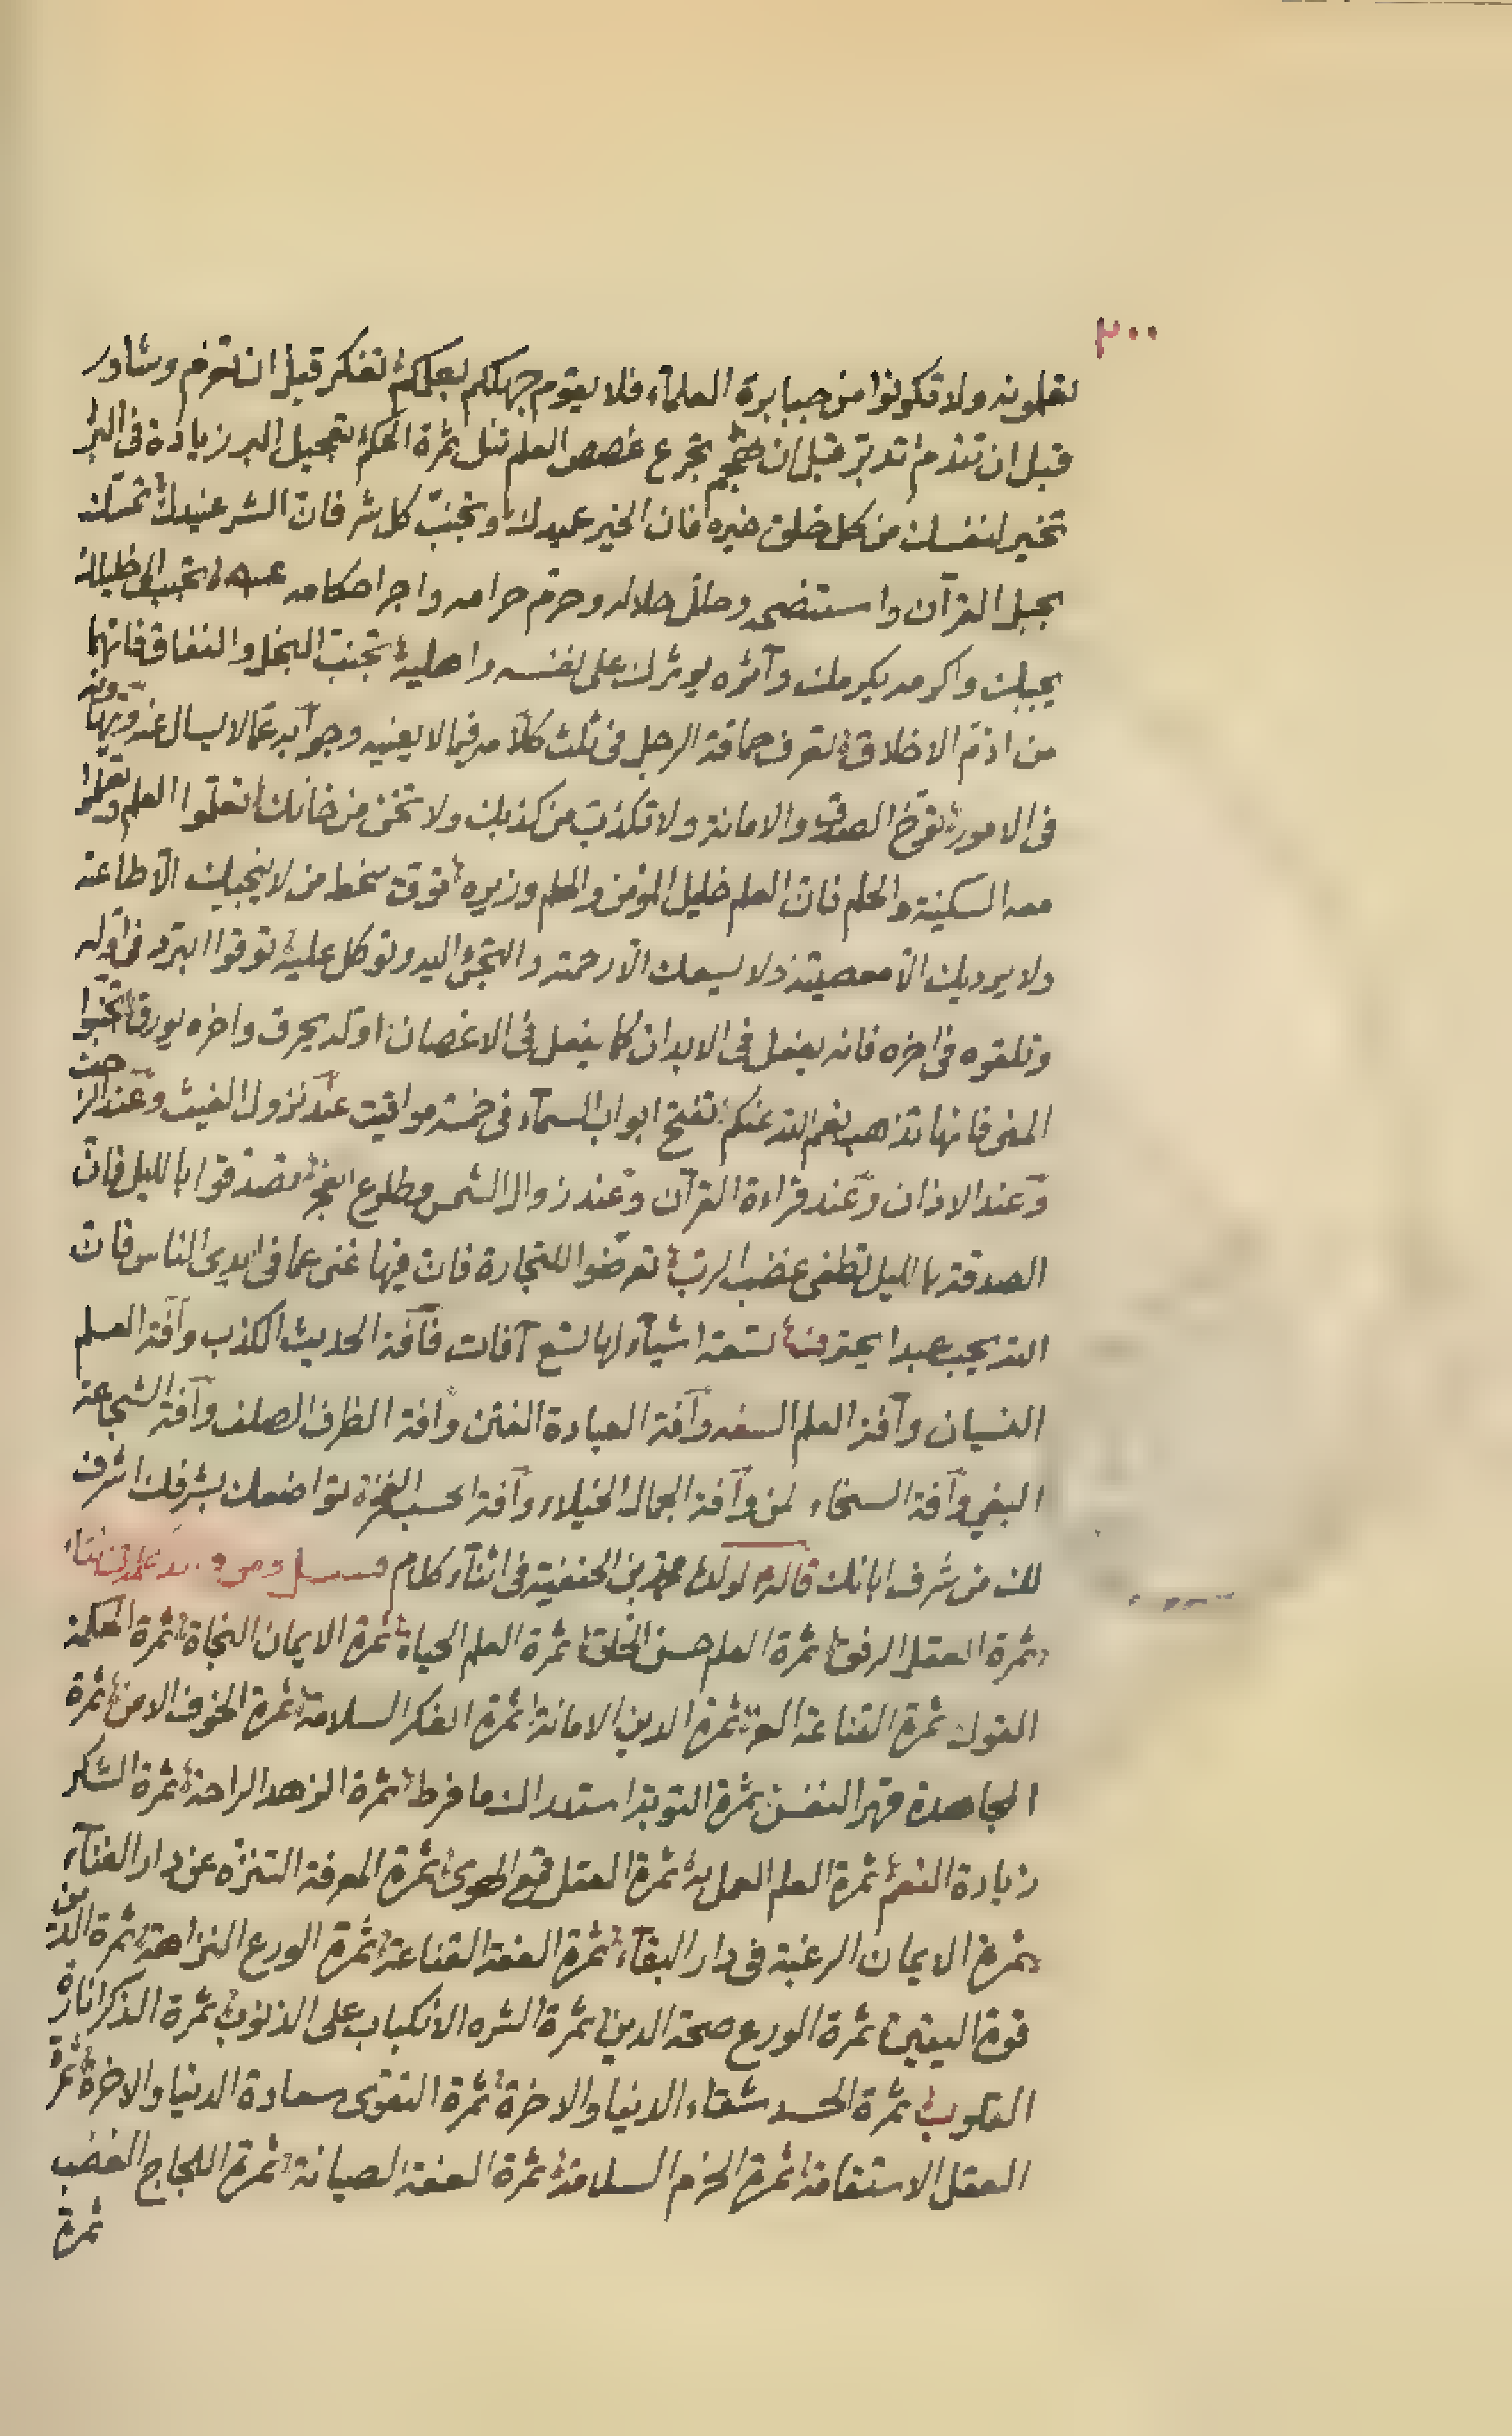 ٣٠٠
تعلمونه ولا تكونوا من جبابرة العلمآء فلا يقوم جهلكم بعلمكم تفكر قبل ان تعزم وشاور
قبل ان تندم تدبر قبل ان تهجم تجرع غصص العلم تنل ثمرة الحكم تعجيل البر زيادة فى البر
تخير لنفسك من كل خلق خيره فان الخير عميدك وتجنب كل شر فان الشر عنيدك تمسك
بحبل القرآن واستنصحه وحلل حلاله وحرم حرامه واجر احكامه تحبب الى خليلك
يحببك واكرمه يكرمك وآثره يوثرك على نفسه واهليه تجنب البخل والنفاق فانهما
من اذم الاخلاق تعرف حماقة الرجل فى ثلث كلامه فيما لا يعنيه وجوآبه عما لا يسال عنه وتهاونه
فى الامور توخ الصدق والامانة ولا تكذب من كذبك ولا تخن من خانك تعلموا العلم وتعلموا
معه السكينة والحلم فان العلم خليل المؤمن والحلم وزيره توق سخط من لا ينجيك الا طاعته
ولا يرديك الا معصيته ولا يسعك الا رحمته والتجئ اليه وتوكل عليه توقوا البرد فى اوله
وتلقوه فى اخره فانه يفعل فى الابدان كما يفعل فى الاغصان اوله يحرق واخره يورق تجنبوا
المنى فانها تذهب بنعم الله عنكم تفتح ابواب السمآء فى خمسة مواقيت عند نزول الغيث وعند الزحف
وعند الاذان وعند قراءة القرآن وعند زوال الشمس وطلوع الفجر تصدقوا بالليل فان
الصدقة بالليل تطفى غضب الرب تعرضوا للتجارة فان فيها غنى عما فى ايدى الناس فان
الله يحب عبدا يحترف تسعة اشيآء لها تسع آفات فآفة الحديث الكذب وآفة العلم
النسيان وآفة الحلم السفه وآفة العبادة الفتن وآفة الظرف الصلف وآفة الشجاعة
البغي وآفة السخاء المن وآفة الجمال الخيلاء وآفة الحسب الفخر تواضعك بشرفك اشرف
لك من شرف ابائك قاله لولده محمد بن الحنفية فى اثنآء كلام
ثمرة العقل الرفق ثمرة العلم حسن الخلق ثمرة العلم الحياة ثمرة الايمان النجاة ثمرة الحكمة
القول ثمرة القناعة العز ثمرة الدين الامانة ثمرة الفكر السلامة ثمرة الخوف الامن ثمرة
المجاهدة قهر النفس ثمرة التوبة استدراك ما فرط ثمرة الزهد الراحة ثمرة الشكر
زيادة النعم ثمرة العلم العمل به ثمرة العقل قمع الهوى ثمرة المعرفة التنزه عن دار الفنآء
ثمرة الايمان الرغبة فى دار البقآء ثمرة العفة القناعة ثمرة الورع النزاهة ثمرة الدين
قوة اليقين ثمرة الورع صحة الدين ثمرة الشره الانكباب على الذنوب ثمرة الذكر انارة
القلوب ثمرة الحسد شقاء الدنيا والاخرة ثمرة التقوى سعادة الدنيا والاخرة ثمرة
العقل الاستقامة ثمرة الحزم السلامة ثمرة العفة الصيانة ثمرة اللجاج الغضب
ثمرة